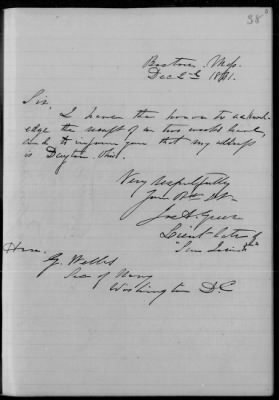 38
Boston, Mass.
Dec 2d 1861.
Sir,
I have the honor to acknowl-
edge the receipt of two weeks leave,
and to inform you that my address
is Dayton Ohio.
Very respectfully
Your Obt. Svt.
Lieut late of
"San Jacinto"
Hon.
G. Welles
Sec of Navy
Washington D.C